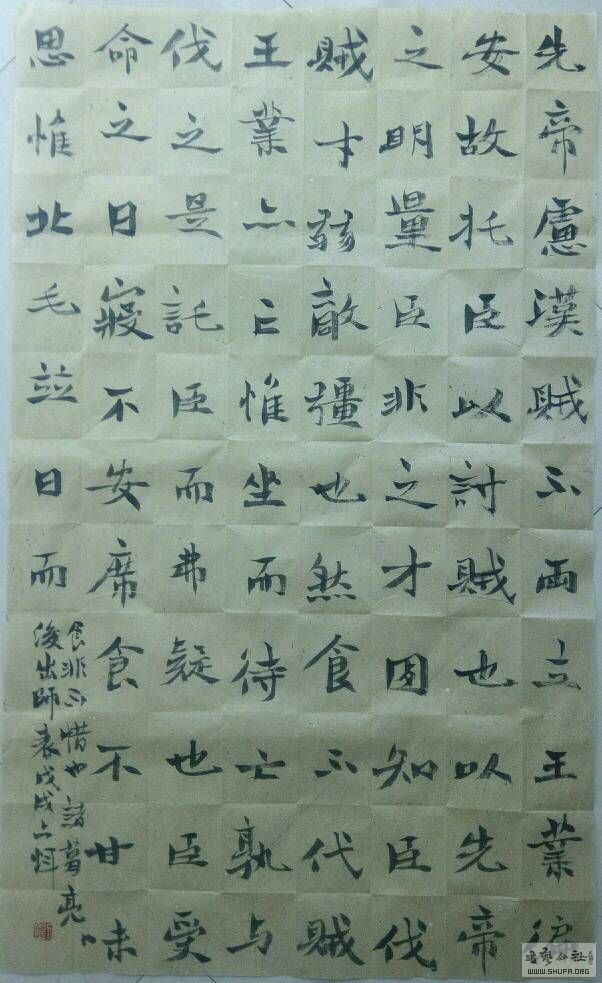 先帝慮漢賊不兩立王業
安故托臣以討賊也以先帝
之明量臣非之才固知臣伐
賊才弱敵彊也然食不代賊
王業亦亡惟坐而待亡孰与
伐之是託臣而弗疑也臣受
命之日寢不安席食不甘味
思惟北毛並日而
食非不惜也諸葛亮
後出師表戊戌上
WWW.SHUFA.ORG